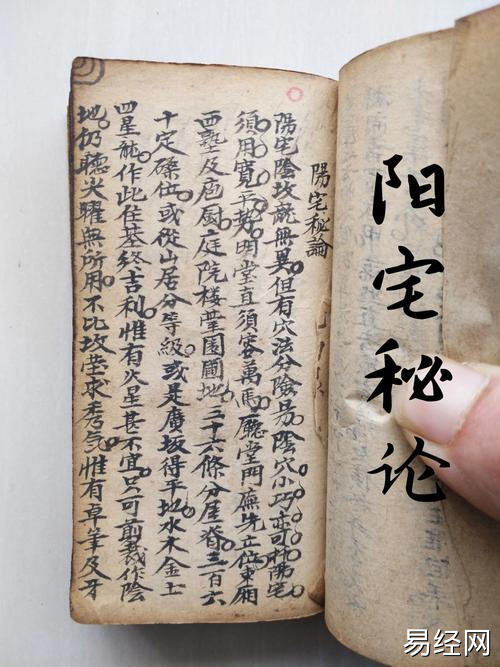 陽宅秘論
陽宅陰坟龍無異但有穴法分險易陰穴小巧亦可扦陽宅
須用寬平勢明堂且須容萬馬廳堂門廡先立位東廂
西塾及庖厨庭院楼臺園圃地三十六條分屋脊三百六
十定磉位或從山居分等級或是廣坂得平地水木金土
四星龍作此住基終吉利惟有火星甚不宜只可剪裁作陰
地仍聽尖曜無所用不比坟塋求秀气惟有卓筆及牙
阳宅秘论
易经网